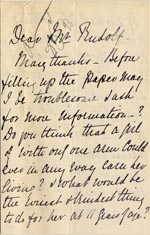 Dear Mr Rudolf.
Many thanks – Before
filling up the Papers may
I be troublesome & ask
for more information –?
Do you think that a girl
with only one arm could
ever in any way earn her
living? & what would be
the wisest & kindest thing
to do for her at 11 years of age?